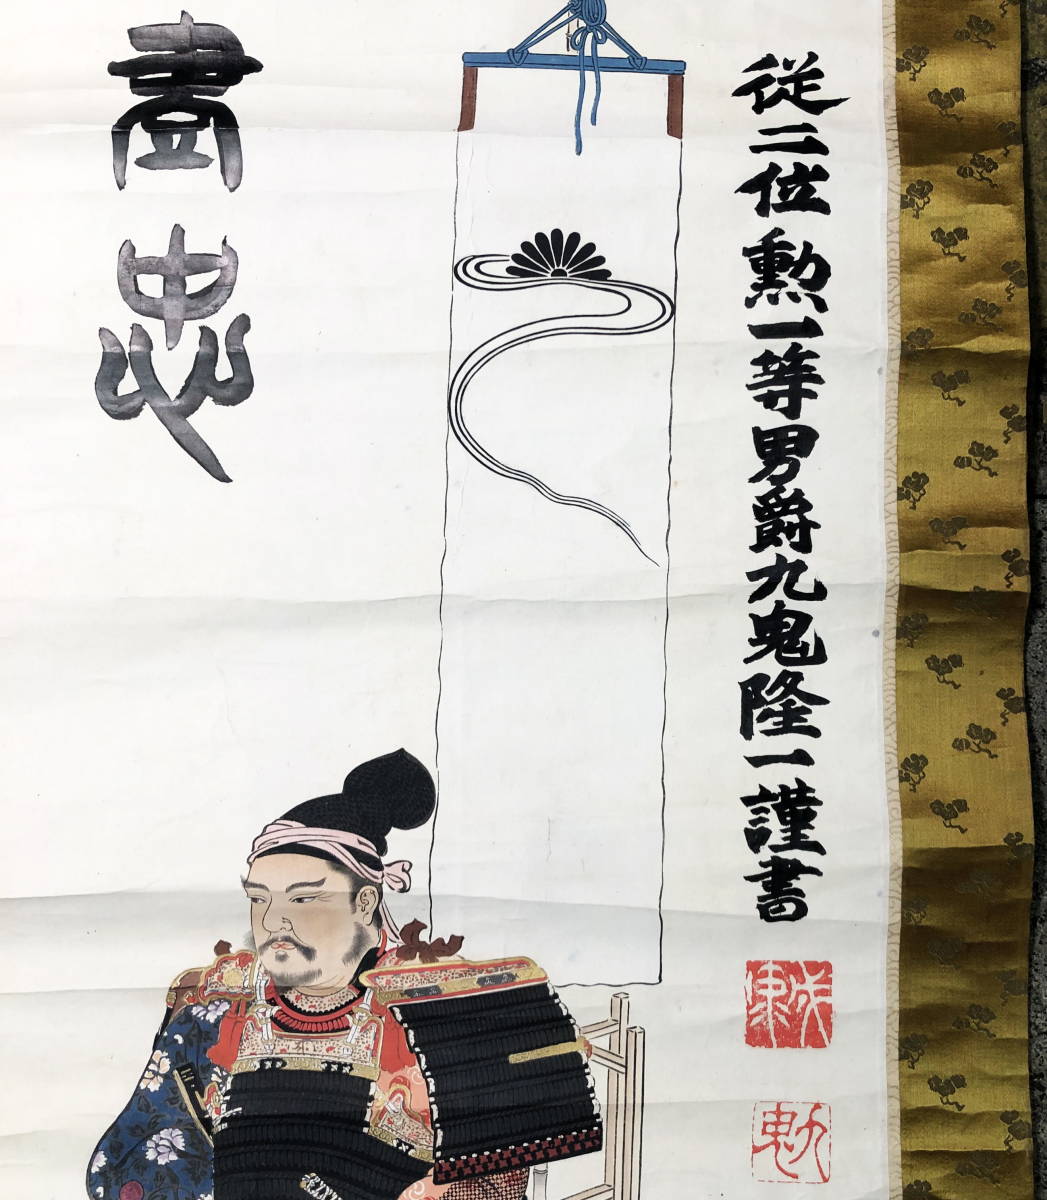 従二位勲一等男爵九鬼隆一謹書
盡忠